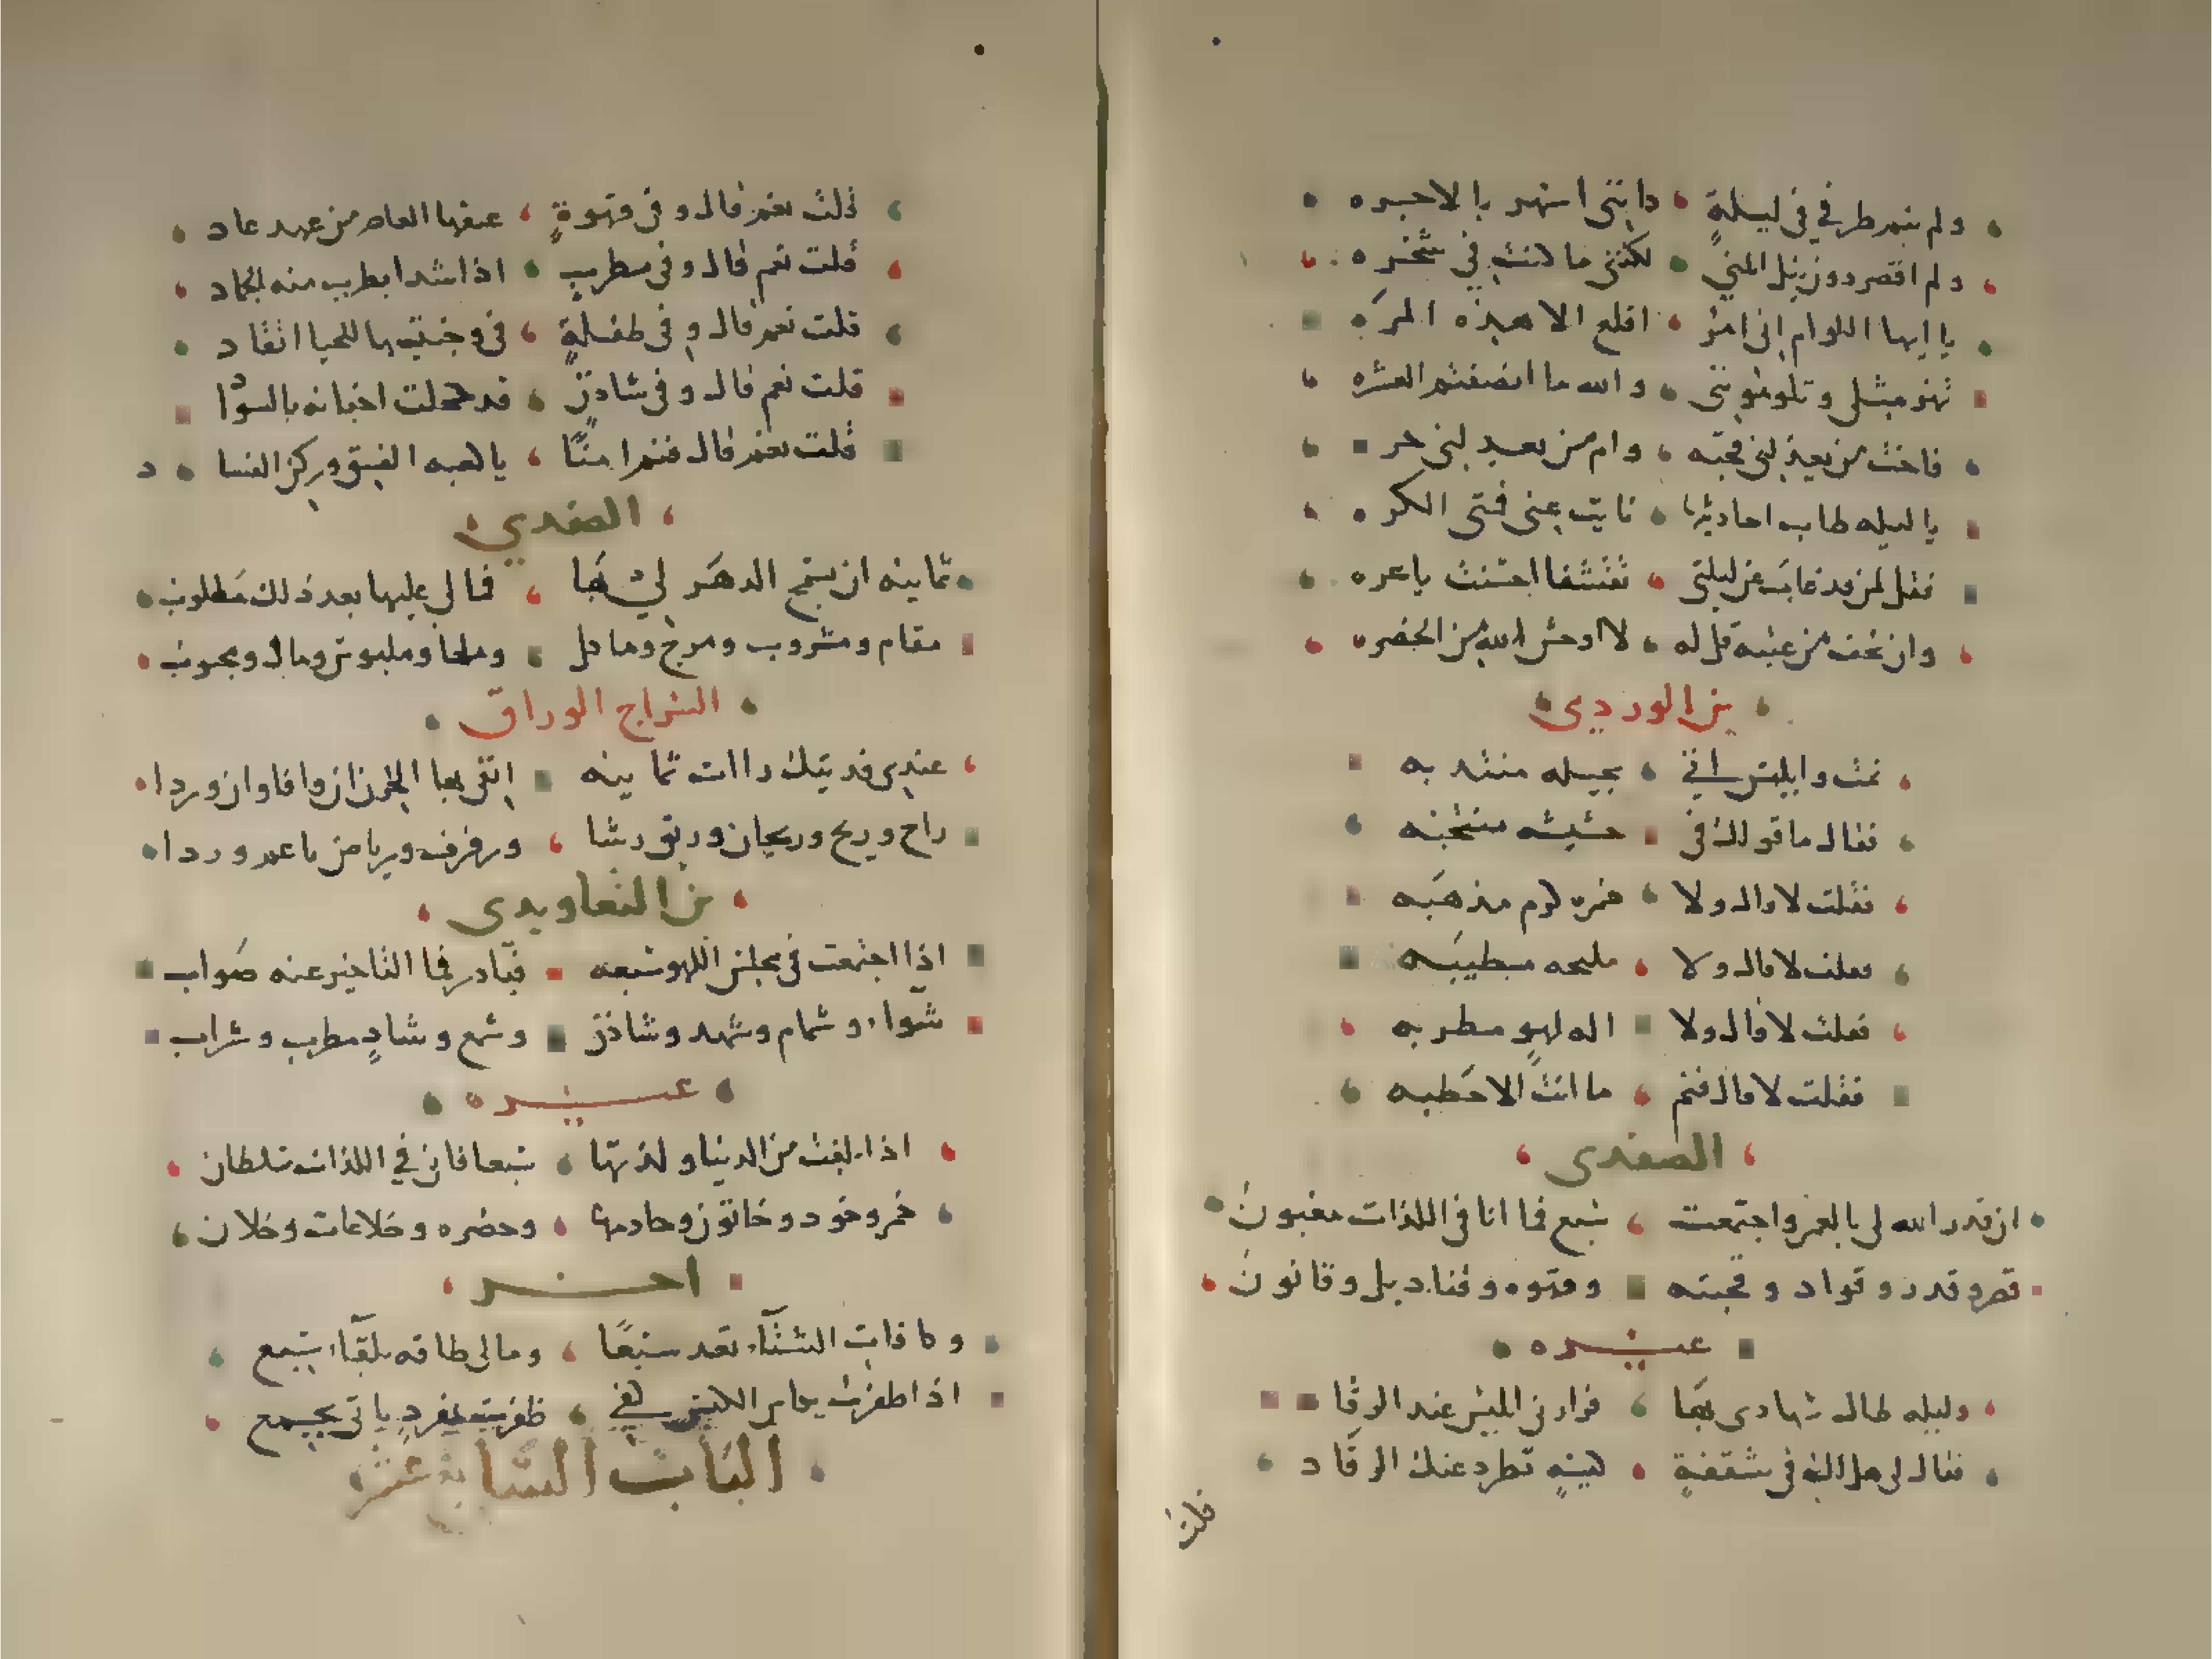 ولم ينم طرفي في ليلة دا بتى اشهر بالاجره
ولم اقصر دون نيل المنى لكننى ما كنت في سخره
يا ايها اللوام انى امرؤ اقلع الا هذه المره
ومثلى وتلومونني والله ما انصفتم العشره
وام من بعد لبنى مر
يا ليله طاب احاديثها فتى الكر
فقل لمن قد غاب عن ليلتي يا عره
وان من قل له لا اوحش الله من الحضره
بن الوردي
نمت وابليس اتى بحيله منتدبه
فقال ما قولك في حشيشه منتخبه
فقلت لا قال ولا خمره كرم مذهبه
فقلت لا قال ولا مليحه مطيبه
فقلت لا قال ولا اله لهو مطربه
فقلت لا قال فنم ما انت الا حطبه
الصفدى
ان قدر الله لى بالعمر واجتمعت سبع فما انا في اللذات مغبون
قصر وقدر وقواد وقحبته وقهوه وقناديل وقانون
غيره
وليله طال سهادى بها فزارنى ابليس عند الرقاد
فقال لى هل لك في شقفة كبسة تطرد عنك الرقاد
قلت
قلت نعم قال وفى قهوة عتقها العاصر من عهد عاد
قلت نعم قال وفى مطرب اذا شدا يطرب منه الجماد
قلت نعم قال وفى طفلة في وجنتيها للحيا اتقاد
قلت نعم قال وفى شادن قد كحلت اجفانه بالسواد
قلت نعم قال فنم امنا يا كعبه الفسق وركن الفساد
الصفدي
ثمانيه ان يسمح الدهر لى بها فما لي عليها بعد ذلك مطلوب
مقام ومشروب ومزج وماكل وملها وملبوس ومال ومحبوب
السراج الوراق
عندي فديتك ثمانيه انفى بها الحزن ان وافا وان وردا
راح وريح وريحان وريق رشا ورفرف ورياض ناعم وردا
بن التعاويدى
اذا اجتمعت في مجلس اللهو سبعه فبادر فما التاخير عنه صواب
شواء وشمام وشهد وشادن وشمع وشاد مطرب وشراب
غيره
اذا بلغت من الدنيا ولذتها سبعا فانى في اللذات سلطان
خمر وخود وخاتون وخادمها وحضره وخلاعات وخلان
اخر
وكافات الشتاء تعد سبعا ومالى طاقه بلقاء سبع
اذا ظفرت بكاف الكيس كفي ظفرت بمفرد ياتى بجمع
الباب السابع عشر